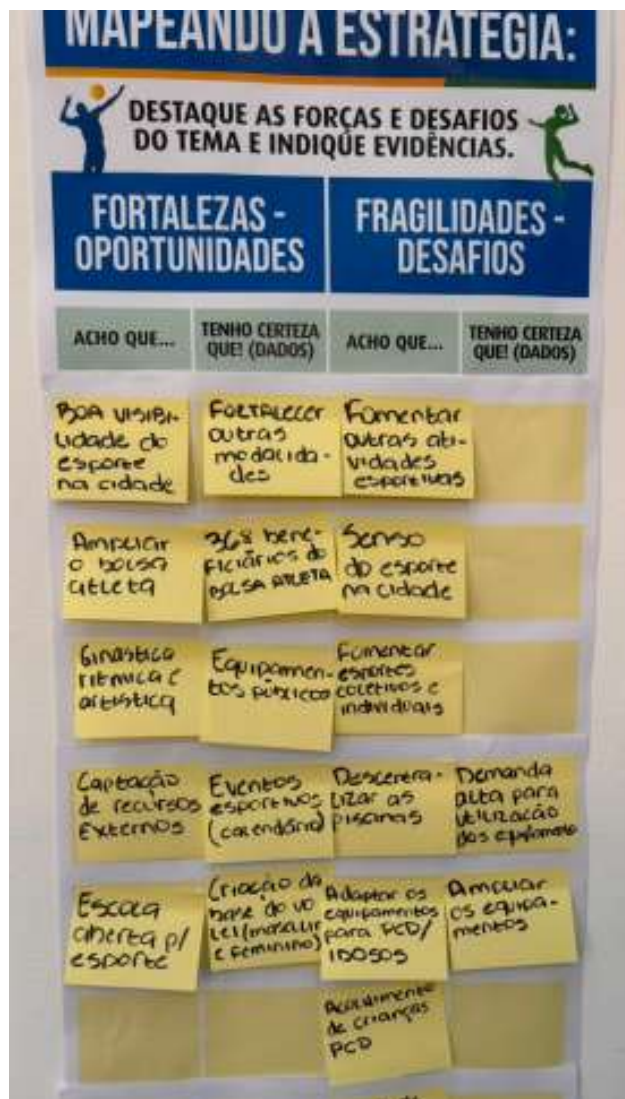 MAPEANDO A ESTRATÉGIA:
DESTAQUE AS FORÇAS E DESAFIOS
DO TEMA E INDIQUE EVIDÊNCIAS.
FORTALEZAS -
OPORTUNIDADES
FRAGILIDADES -
DESAFIOS
ACHO QUE...
TENHO CERTEZA
QUE! (DADOS)
ACHO QUE...
TENHO CERTEZA
QUE! (DADOS)
BOA VISIBI-
lidade do
esporte
na cidade
FORTALECER
outras
modalida-
des
Fomentar
outras ati-
vidades
esportivas
Ampliar
o bolsa
atleta
368 bene-
ficiários do
BOLSA ATLETA
Senso
do esporte
na cidade
Ginástica
rítmica e
artística
Equipamen-
tos públicos
Fomentar
esportes
coletivos e
individuais
Captação
de recursos
Externos
Eventos
esportivos
(calendário)
Descentra-
lizar as
piscinas
Demanda
alta para
utilização
dos
Escola
aberta p/
esporte
Criação da
base do vo
lei (masculi
e feminino)
Adaptar os
equipamentos
para PCD/
IDOSOS
Ampliar
os equipa-
mentos
Acolhimento
de crianças
PCD